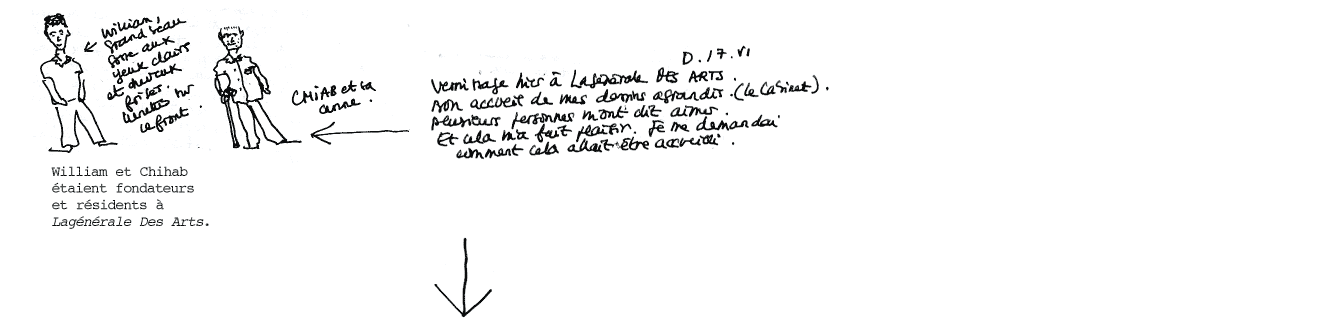 William,
grand beau
aux
yeux clairs
et cheveux
frisés.
lunettes sur
le front.
CHIAB et sa
canne.
D. 17. VI
Vernissage hier à Lagénérale DES ARTS.
Bon accueil de mes dessins agrandis. (Le Casinet).
plusieurs personnes m'ont dit aimer.
Et cela m'a fait plaisir. Je me demandai
comment cela allait être accueilli.
William et Chihab
étaient fondateurs
et résidents à
Lagénérale Des Arts.